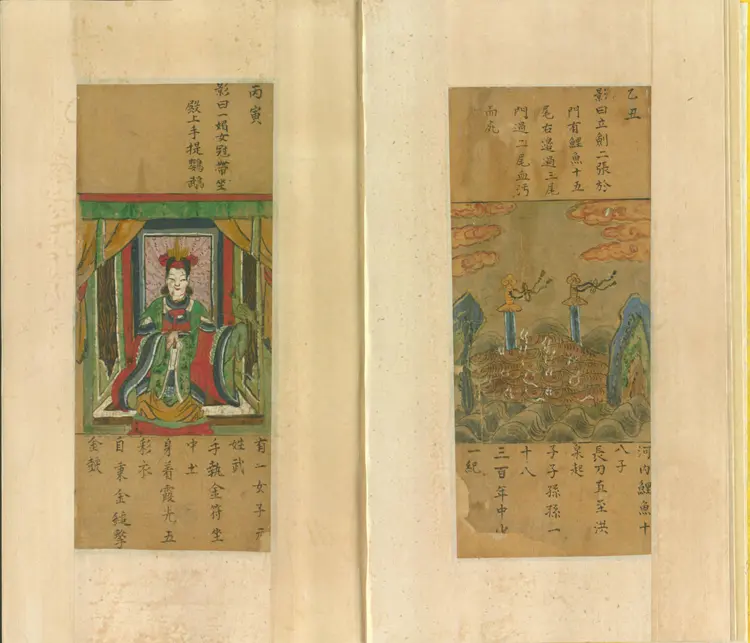 乙丑
影曰立劍二張於
門有鯉魚十五
尾右邊過三尾
門過二尾血污
而死
河內鯉魚十
八子
長刀直至洪
泉起
子子孫孫一
十八
三百年中少
一紀
丙寅
影曰一婦女冠帶坐
殿上手提鸚鵡
有一女子
姓武
手執金符坐
中土
身着霞光五
彩衣
自秉金鏡擊
金鼓